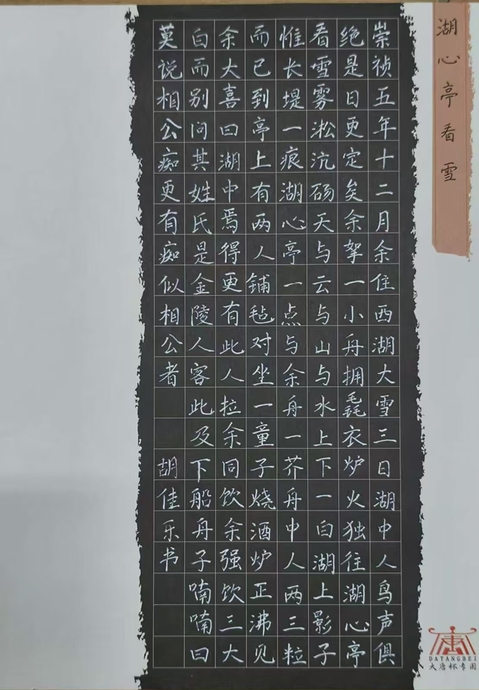 湖心亭看雪
崇祯五年十二月余住西湖大雪三日湖中人鸟声俱
绝是日更定矣余挐一小舟拥毳衣炉火独往湖心亭
看雪雾淞沆砀天与云与山与水上下一白湖上影子
惟长堤一痕湖心亭一点与余舟一芥舟中人两三粒
而已到亭上有两人铺毡对坐一童子烧酒炉正沸见
余大喜曰湖中焉得更有此人拉余同饮余强饮三大
白而别问其姓氏是金陵人客此及下船舟子喃喃曰
莫说相公痴更有痴似相公者 胡佳乐书
DATANGBEI
大唐杯专用